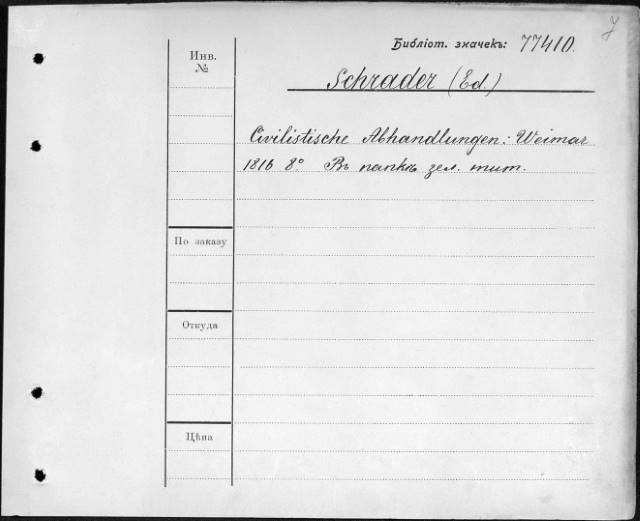 Библіот. значекъ: 77410.
Инв.
№
Schrader (Ed.)
Civilistische Abhandlungen: Weimar
1816 8° Въ папкѣ зел. тит.
По заказу
Откуда
Цѣна